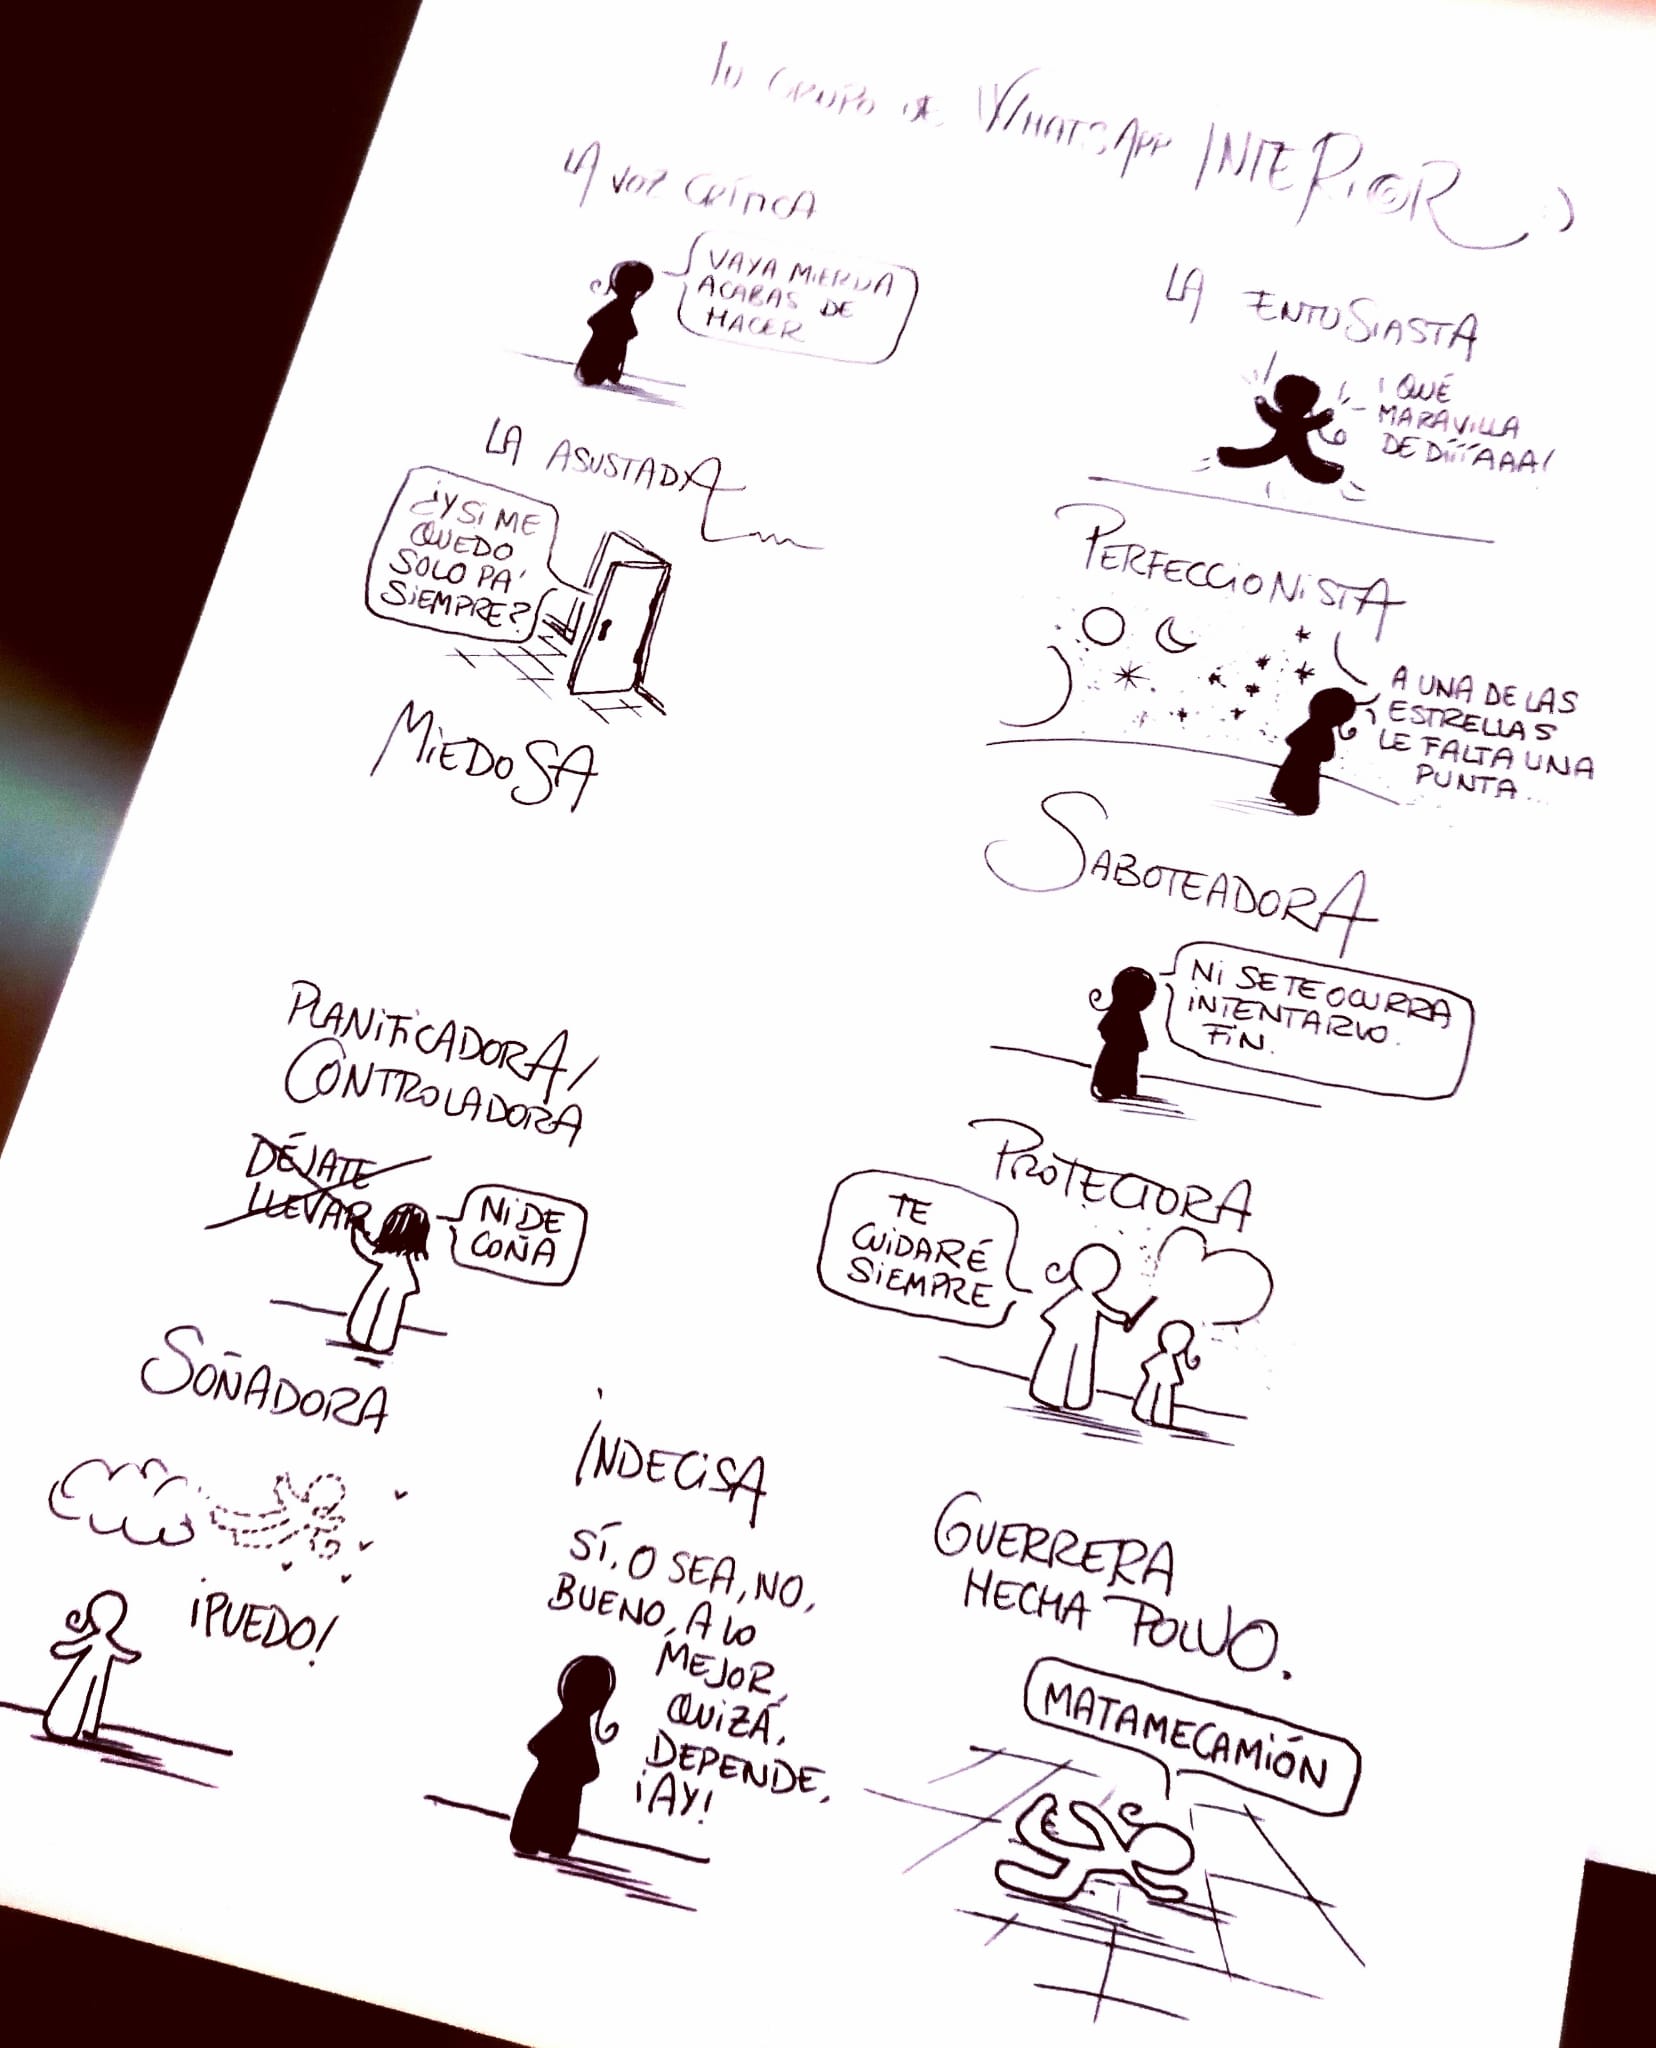 TU GRUPO DE WHATSAPP INTERIOR
LA VOZ CRÍTICA
VAYA MIERDA
ACABAS DE
HACER
LA ENTUSIASTA
¡QUÉ
MARAVILLA
DE DÍÍÍAAA!
LA ASUSTADA
¿Y SI ME
QUEDO
SOLO PA'
SIEMPRE?
MIEDOSA
PERFECCIONISTA
A UNA DE LAS
ESTRELLAS
LE FALTA UNA
PUNTA...
SABOTEADORA
NI SE TE OCURRA
INTENTARLO.
FIN.
PLANIFICADORA/
CONTROLADORA
DÉJATE
LLEVAR
NI DE
COÑA
PROTECTORA
TE
CUIDARÉ
SIEMPRE
SOÑADORA
¡PUEDO!
INDECISA
SÍ, O SEA, NO,
BUENO, A LO
MEJOR,
QUIZÁ,
DEPENDE,
¡AY!
GUERRERA
HECHA POLVO.
MATAMECAMIÓN